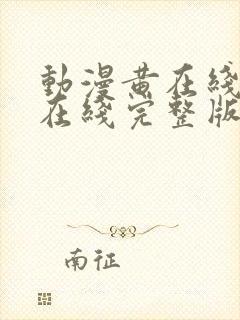 動漫黄在綫
在綫完整版
南征